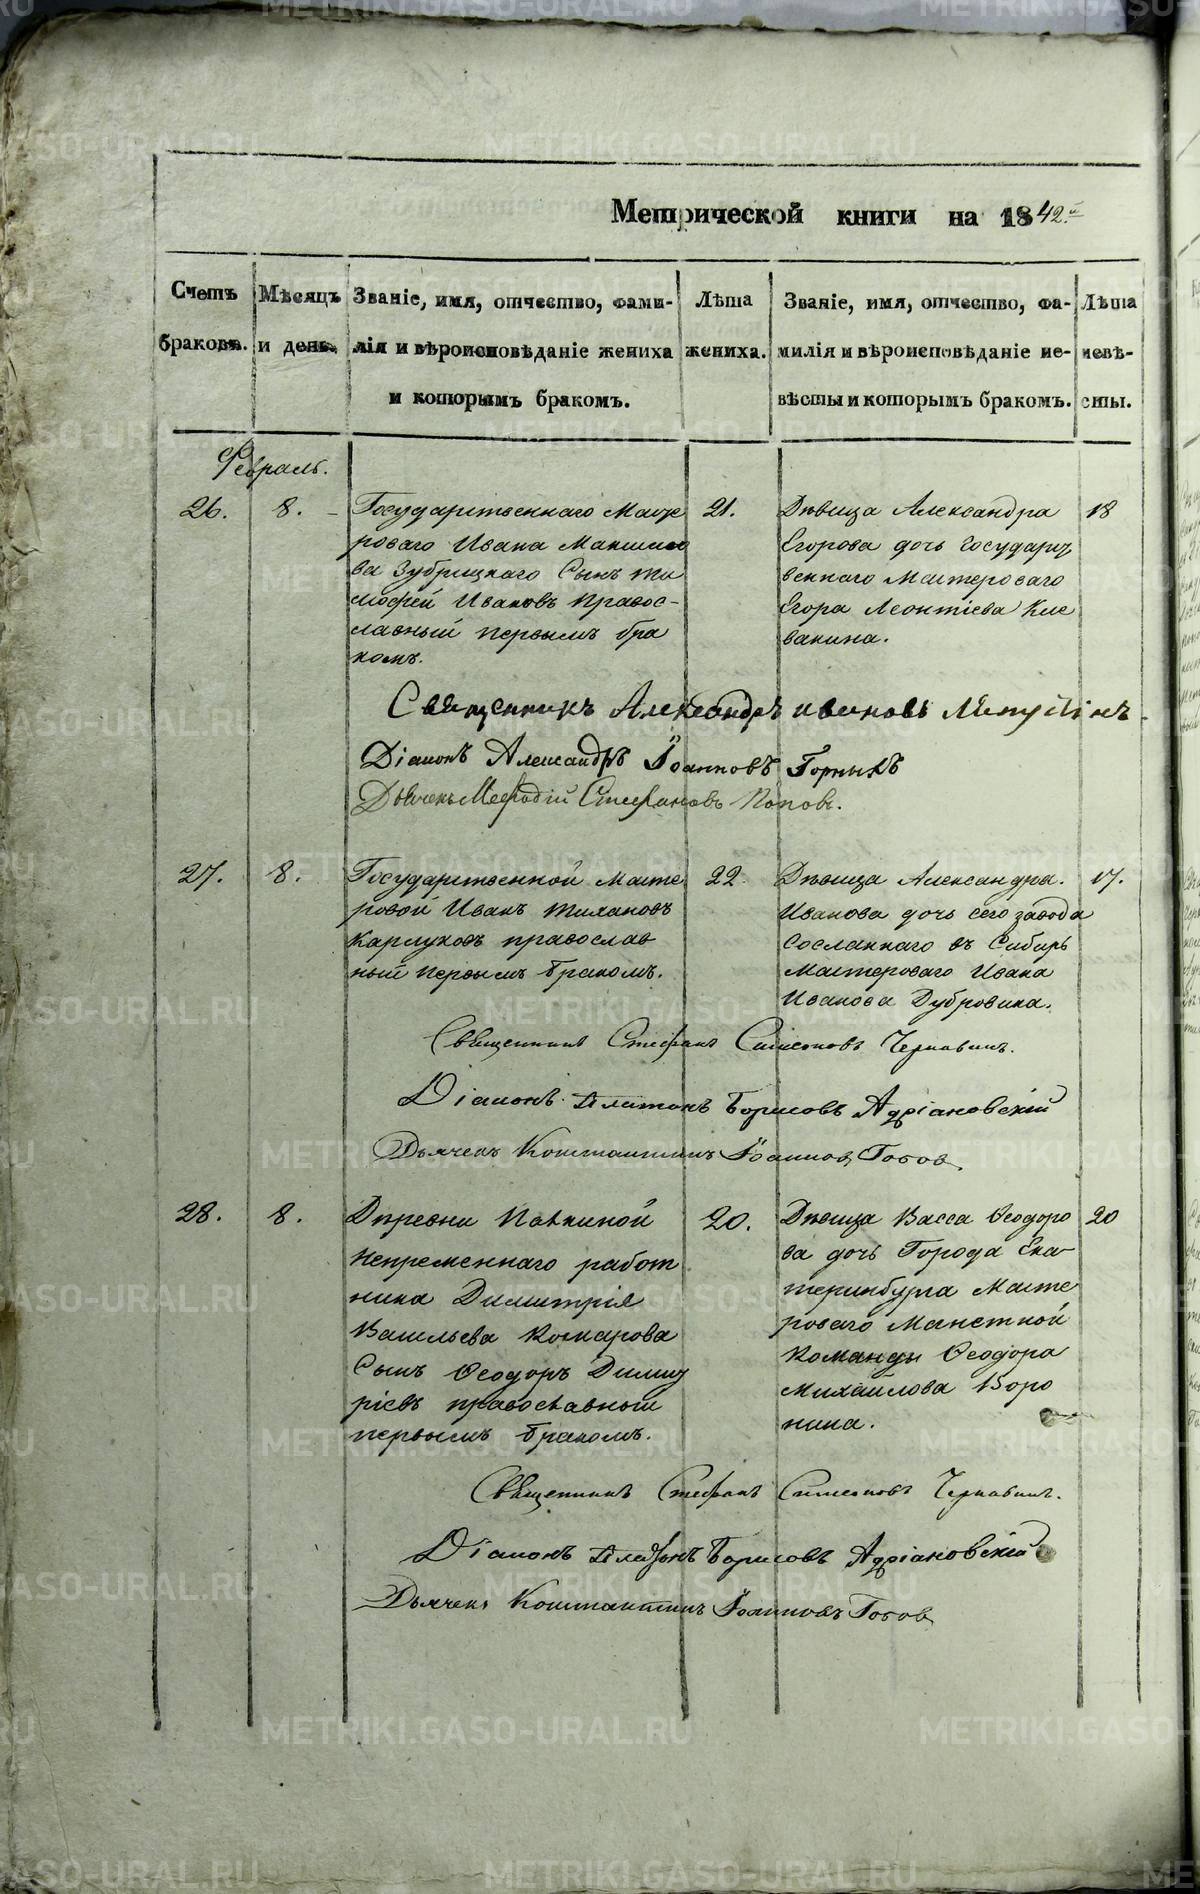 Метрической книги на 1842й
Счетъ браковъ.
Мѣсяцъ и день.
Званіе, имя, отчество, фами-
лія и вѣроисповѣданіе жениха
и которымъ бракомъ.
Лѣта жениха.
Званіе, имя, отчество, фа-
милія и вѣроисповѣданіе не-
вѣсты и которымъ бракомъ.
Лѣта невѣ-
сты.
Февраль.
26.
8.
Государственнаго Масте
роваго Ивана Максимо
ва Зубрицкаго Сынъ Ти
мофей Ивановъ Правос-
лавный первымъ бра
комъ.
21.
Дѣвица Александра
Егорова дочь Государст
веннаго Мастероваго
Егора Леонтіева Кле
вакина.
18
Священникъ Александръ Ивановъ
Діаконъ Александръ Іоанновъ Горныхъ
Дьячекъ Меѳодій Стефановъ Поповъ.
27.
8.
Государственной Масте
ровой Иванъ Тихановъ
Карлуковъ православ
ный первымъ бракомъ.
22
Дѣвица Александра.
Иванова дочь сего завода
сосланнаго въ Сибирь
Мастероваго Ивана
Иванова Дубровина.
17.
Священникъ Стефанъ Симеоновъ Чернавинъ.
Діаконъ Платонъ Борисовъ Адріановскій
Дьячекъ Константинъ Іоанновъ Топов
28.
8.
Деревни Павкиной
Непременнаго работ
ника Димитрія
Васильева Комарова
Сынъ Ѳеодоръ Димит
ріевъ православный
первымъ бракомъ.
20.
Дѣвица Васса Ѳеодоро
ва дочь Города Ека-
теринбурга Масте
роваго Манетной
Команды Ѳеодора
Михайлова Воро
нина.
20
Священникъ Стефанъ Симеоновъ Чернавинъ.
Діаконъ Платонъ Борисовъ Адріановскій
Дьячекъ Константинъ Іоанновъ
METRIKI.GASO-URAL.RU